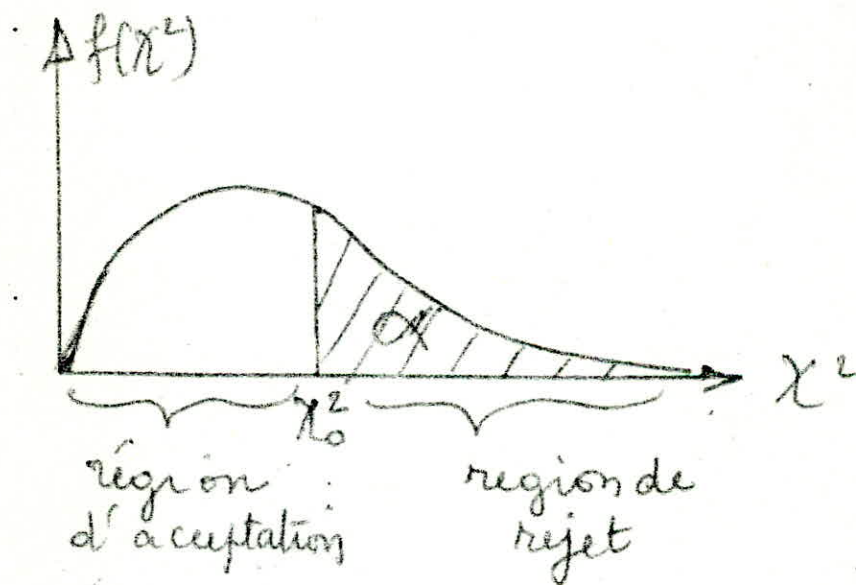 f(χ²)
α
χ²
χ₀²
région
d'acceptation
region de
rejet